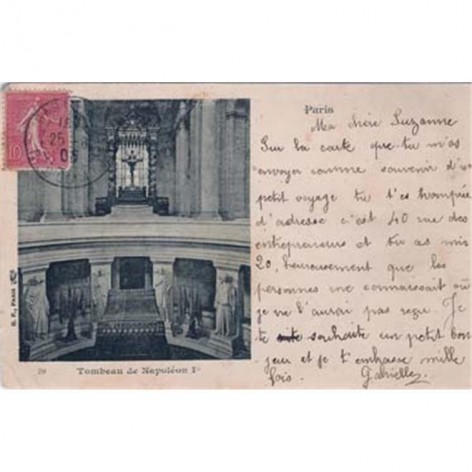 Paris
Ma chère Suzanne
Sur la carte que tu m'as
envoyer comme souvenir d'un
petit voyage tu t'es trompée
d'adresse c'est 40 rue des
entrepreneurs et tu as mis
20, heureusement que les
personnes me connaissait où
je ne l'aurai pas reçu. Je
te souhaite un petit bon
jour et je t'embrasse mille
fois. Gabrielle
10
25
05
B. F., PARIS
79
Tombeau de Napoléon Iᵉʳ